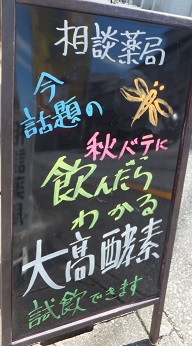 相談薬局
今
話題の
秋バテに
飲んだら
わかる
大高酵素
試飲できます